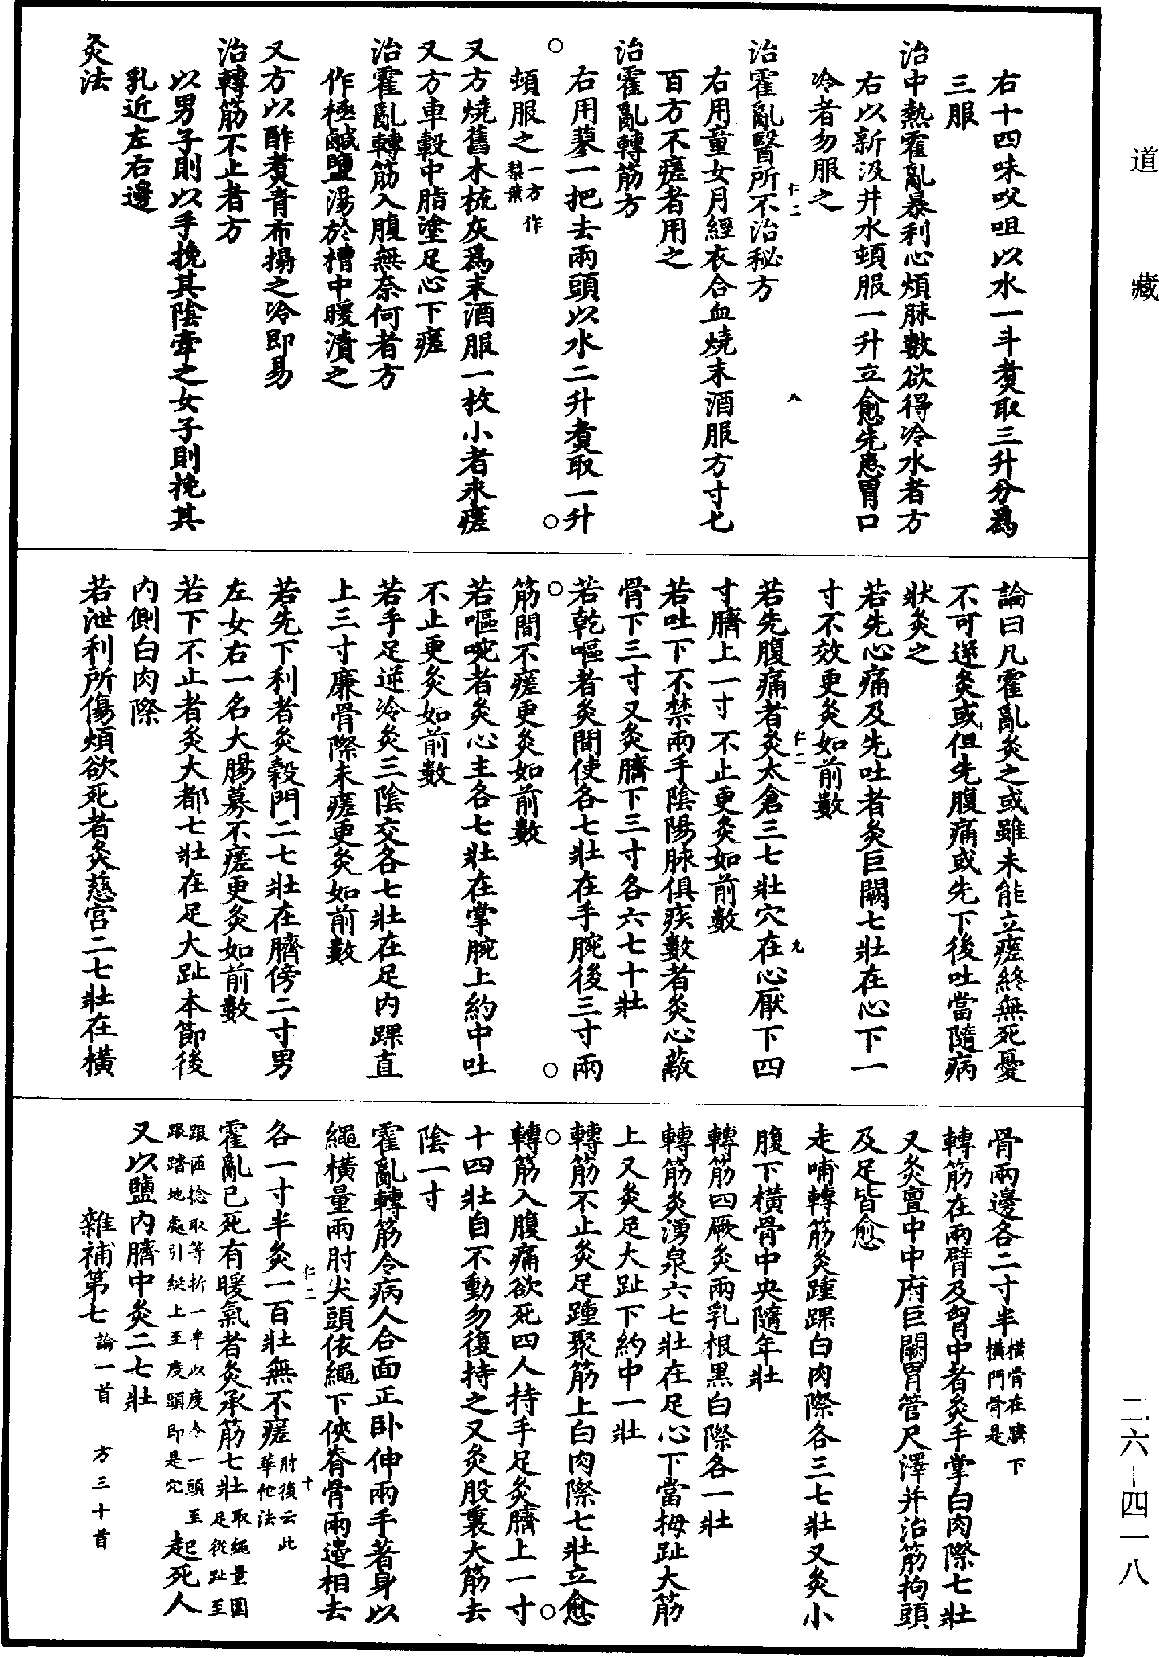 道藏
右十四味㕮咀以水一斗煑取三升分為
三服
治中熱霍亂暴利心煩脉數欲得冷水者方
右以新汲井水頓服一升立愈先患胃口
冷者勿服之
仁二
八
治霍亂醫所不治秘方
右用童女月經衣合血燒末酒服方寸匕
百方不瘥者用之
治霍亂轉筋方
右用蓼一把去兩頭以水二升煑取一升
頓服之一方作梨葉
又方燒舊木梳灰為末酒服一枚小者永瘥
又方車轂中脂塗足心下瘥
治霍亂轉筋入腹無奈何者方
作極鹹鹽湯於槽中暖漬之
又方以酢煑青布搨之冷即易
治轉筋不止者方
以男子則以手挽其陰牽之女子則挽其
乳近左右邊
灸法
論曰凡霍亂灸之或雖未能立瘥終無死憂
不可逆灸或但先腹痛或先下後吐當隨病
狀灸之
若先心痛及先吐者灸巨闕七壯在心下一
寸不效更灸如前數
仁二
九
若先腹痛者灸太倉三七壯穴在心厭下四
寸臍上一寸不止更灸如前數
若吐下不禁兩手陰陽脉俱疾數者灸心蔽
骨下三寸又灸臍下三寸各六七十壯
若乾嘔者灸間使各七壯在手腕後三寸兩
筋間不瘥更灸如前數
若嘔啘者灸心主各七壯在掌腕上約中吐
不止更灸如前數
若手足逆冷灸三陰交各七壯在足內踝直
上三寸廉骨際未瘥更灸如前數
若先下利者灸穀門二七壯在臍傍二寸男
左女右一名大腸募不瘥更灸如前數
若下不止者灸大都七壯在足大趾本節後
內側白肉際
若泄利所傷煩欲死者灸慈宮二七壯在橫
骨兩邊各二寸半橫骨在臍下橫門骨是
轉筋在兩臂及胷中者灸手掌白肉際七壯
又灸亶中中府巨闕胃管尺澤并治筋拘頭
及足皆愈
走哺轉筋灸踵踝白肉際各三七壯又灸小
腹下橫骨中央隨年壯
轉筋四厥灸兩乳根黑白際各一壯
轉筋灸湧泉六七壯在足心下當拇趾大筋
上又灸足大趾下約中一壯
轉筋不止灸足踵聚筋上白肉際七壯立愈
轉筋入腹痛欲死四人持手足灸臍上一寸
十四壯自不動勿復持之又灸股裏大筋去
陰一寸
霍亂轉筋令病人合面正卧伸兩手著身以
繩橫量兩肘尖頭依繩下俠脊骨兩邊相去
仁二
十
各一寸半灸一百壯無不瘥肘後云此華佗法
霍亂已死有暖氣者灸承筋七壯取繩量圍足從趾至跟匝捻取等折一半以度令一頭至跟踏地處引綖上至度頭即是穴起死人
又以鹽內臍中灸二七壯
雜補第七論一首 方三十首
二六—四一八